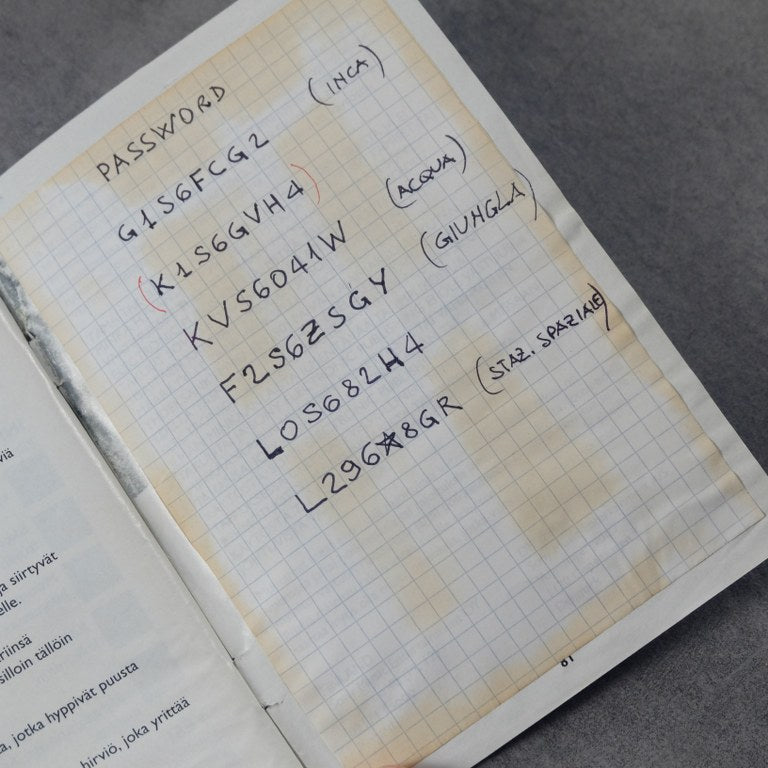 PASSWORD
G1S6FCG2 (INCA)
(K1S6GVH4)
KVS6041W (ACQUA)
F2S6ZSGY (GIUNGLA)
LOS682H4
L296★8GR (STAZ. SPAZIALE)
viä
ja siirtyvät
elle.
riinsä
silloin tällöin
a, jotka hyppivät puusta
hirviö, joka yrittää